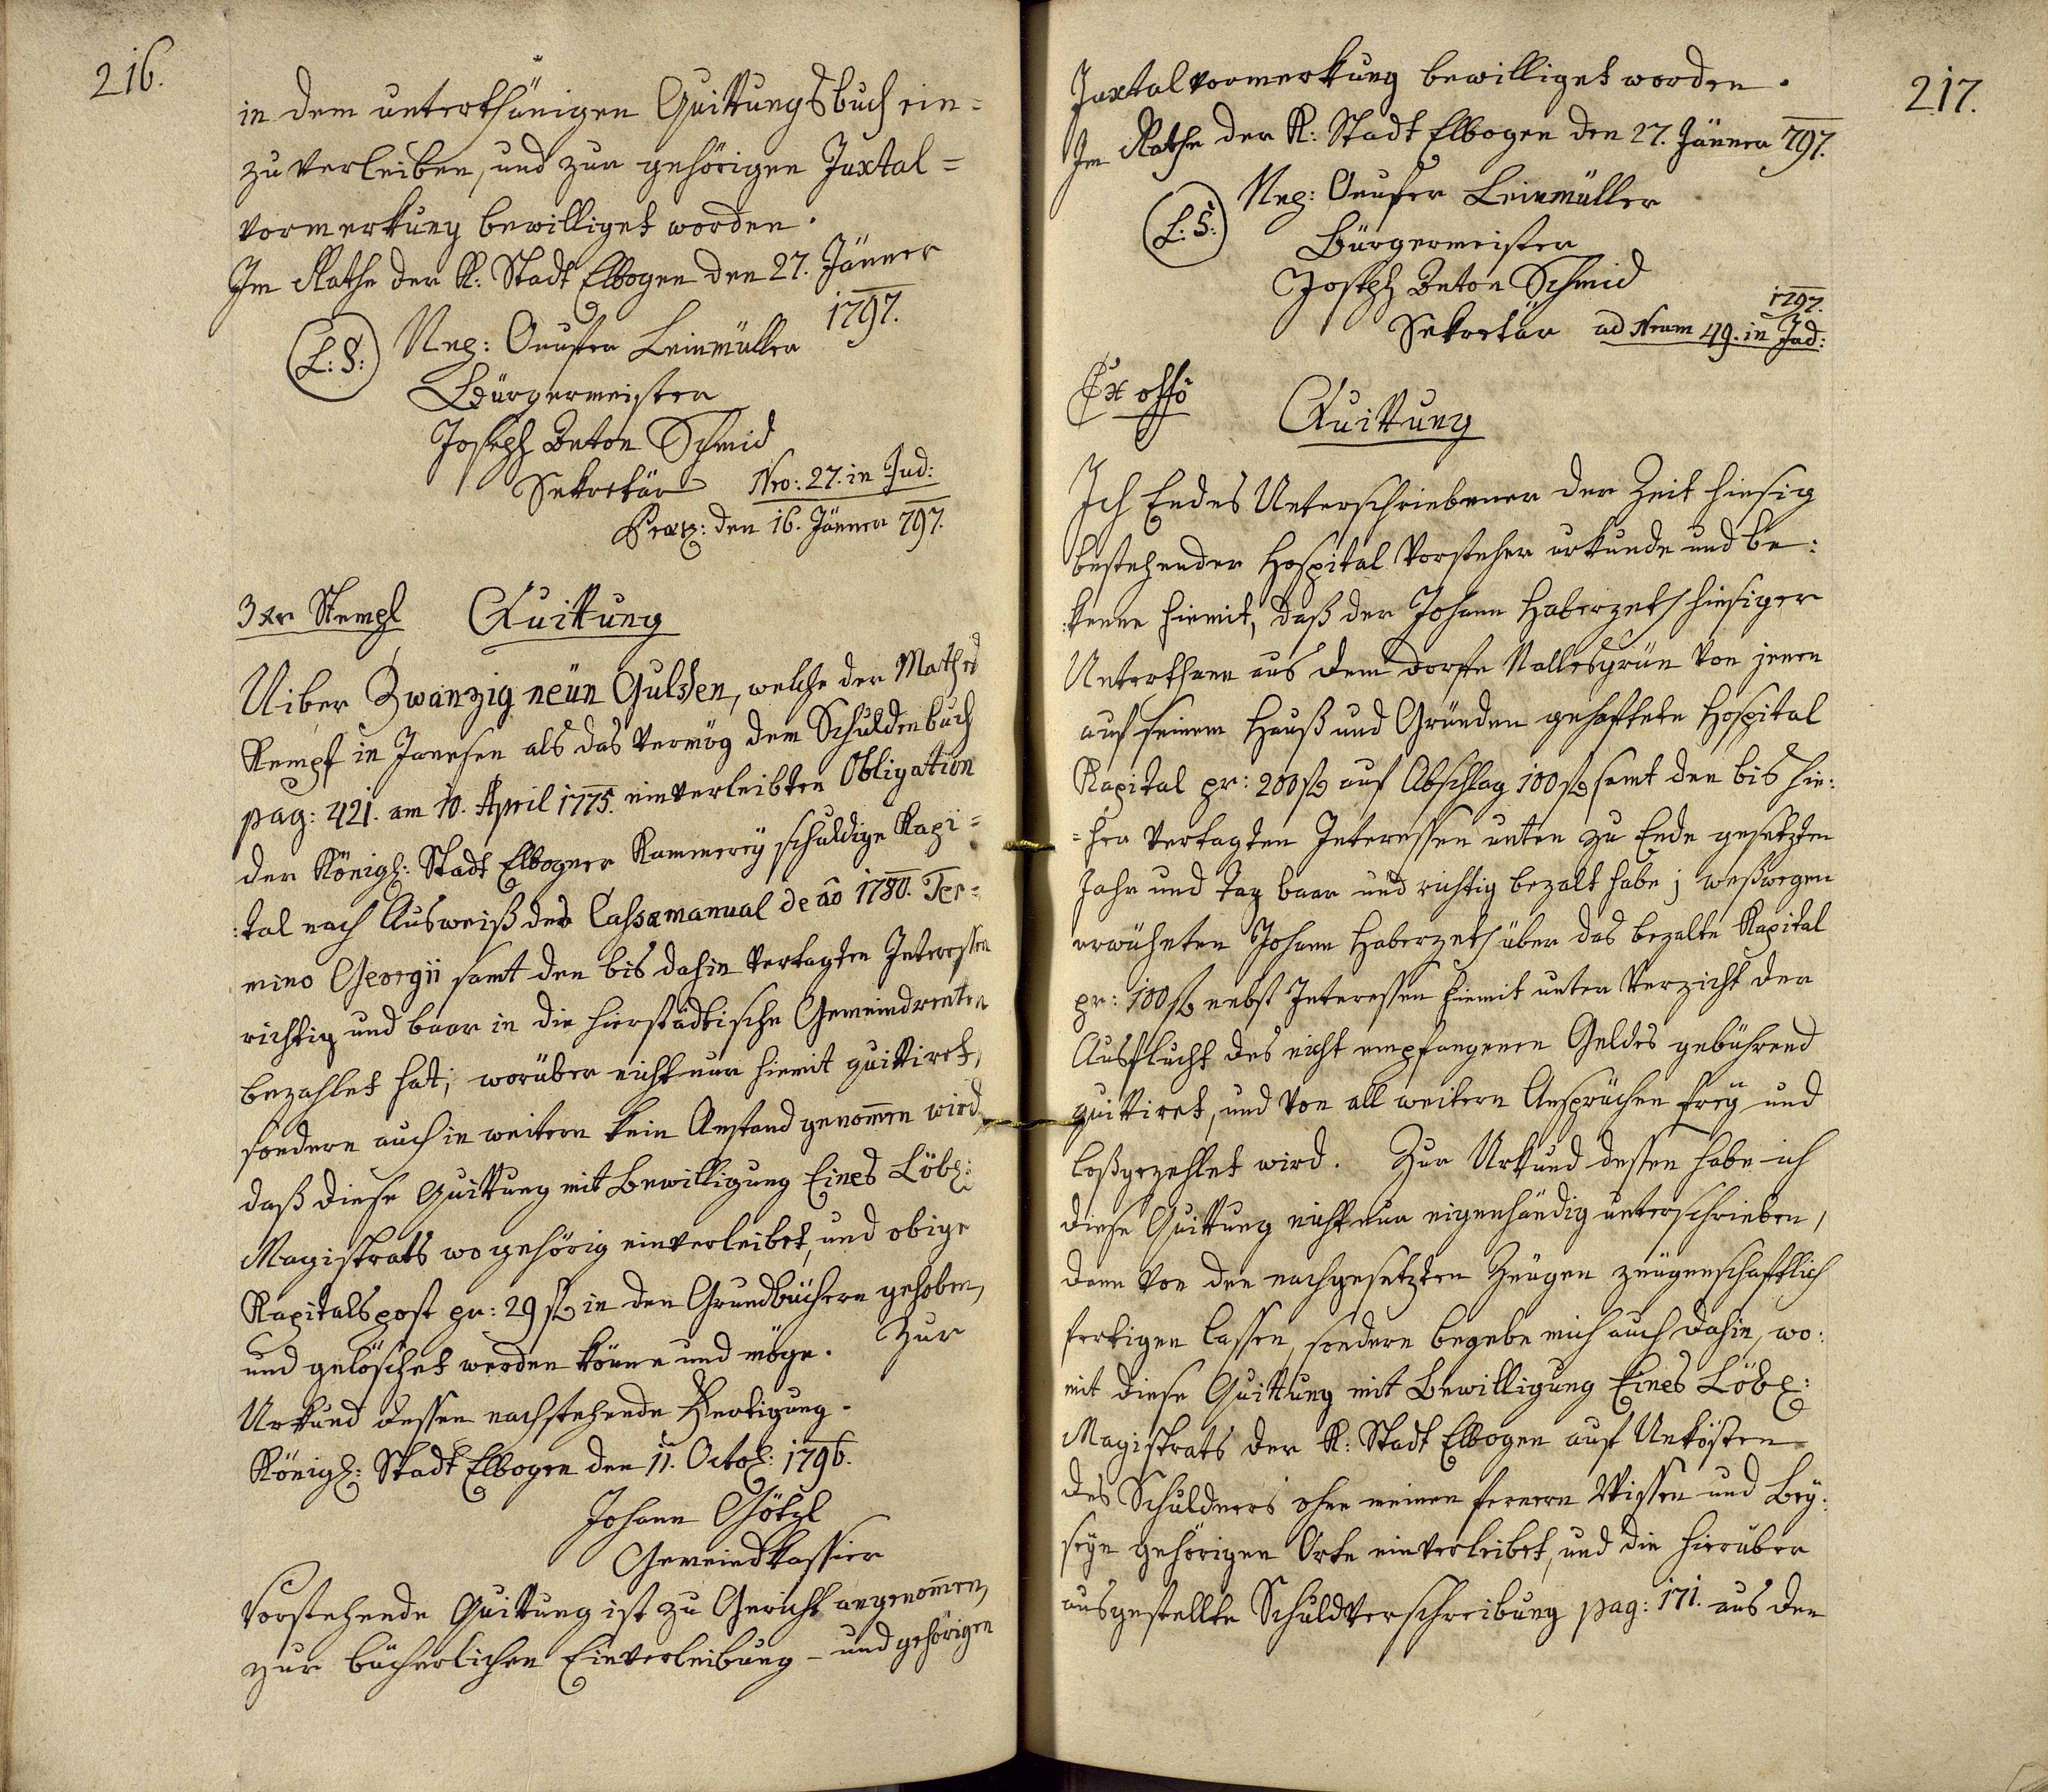 216.
in dem unterthänigen Quittungsbuch ein=
zuverleiben, und zur gehörigen Juxtal=
vormerkung bewilliget worden.
Im Rathe der K: Stadt Elbogen den 27. Jänner
1797.
L: S: Onufer Leinmüller
Bürgermeister
Joseph Anton Schmid
Sekretär Nro: 27. in Jud:
den 16. Jänner 797.
3 xr Stempl Quittung
Uiber Zwanzig neün Gulden, welche der Mathes
Kempf in Janesen als das vermög dem Schuldenbuch
pag: 421. am 10. April 1775. einverleibten Obligation
der Königl: Stadt Elbogner Kammerey schuldige Kapi=
:tal nach Ausweiß des Cassamanual de ao 1780. Ter=
mino Georgii samt den bis dahin vertagten Interessen
richtig und baar in die hierstädtische Gemeindrenten
bezahlet hat; worüber nicht nur hiemit quittiret,
sondern auch in weitern kein Anstand genommen wird,
daß diese Quittung mit Bewilligung Eines Löbl:
Magistrats wo gehörig einverleibet, und obige
Kapitalspost pr: 29 f in den Grundbüchern gehoben,
und gelöschet werden könne und möge. Zur
Urkund dessen nachstehende Fertigung.
Königl: Stadt Elbogen den 11. Octob: 1796.
Johann Götzl
Gemeindkassier
Vorstehende Quittung ist zu Gericht angenommen,
zur bücherlichen Einverleibung - und gehörigen
217.
Juxtalvormerkung bewilliget worden.
Im Rathe der K: Stadt Elbogen den 27. Jänner 797.
L: S: Onufer Leinmüller
Bürgermeister
Joseph Anton Schmid
1797.
Sekretär ad Nrum 49. in Jud:
Ex offo Quittung
Ich Endes Unterschriebener der Zeit hiesig
bestehender Hospital Vorsteher urkunde und be:
:kenne hiemit, daß der Johann Haberzetl hiesiger
Unterthann aus dem Dorfe Nallesgrün von jenen
auf seinem Hauß und Gründen gehafteten Hospital
Kapital pr: 200 f auf Abschlag 100 f samt den bis hie:
=her vertagten Interessen unten zu Ende gesetzten
Jahr und Tag baar und richtig bezalt habe; weßwegen
erwähnten Johann Haberzetl über das bezalte Kapital
pr: 100 f nebst Interessen hiemit unter Verzicht der
Ausflucht des nicht empfangenen Geldes gebührend
quittiret, und von all weitern Ansprüchen frey und
loßgezehlet wird. Zur Urkund dessen habe ich
diese Quittung nicht nur eigenhändig unterschrieben,
dann von den nachgesetzten Zeugen zeugenschaftlich
fertigen lassen, sondern begebe mich auch dahin, wo:
mit diese Quittung mit Bewilligung Eines Löbl:
Magistrats der K: Stadt Elbogen auf Unkösten
des Schuldners ohne meinen fernern Wissen und Bey:
seyn gehörigen Orte einverleibet, und die hierüber
ausgestellte Schuldverschreibung pag: 171. aus den